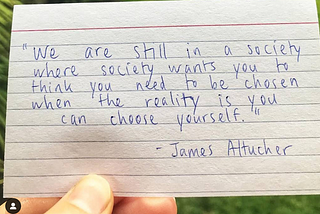 "We are still in a society
where society wants you to
think you need to be chosen
when the reality is you
can choose yourself."
- James Altucher